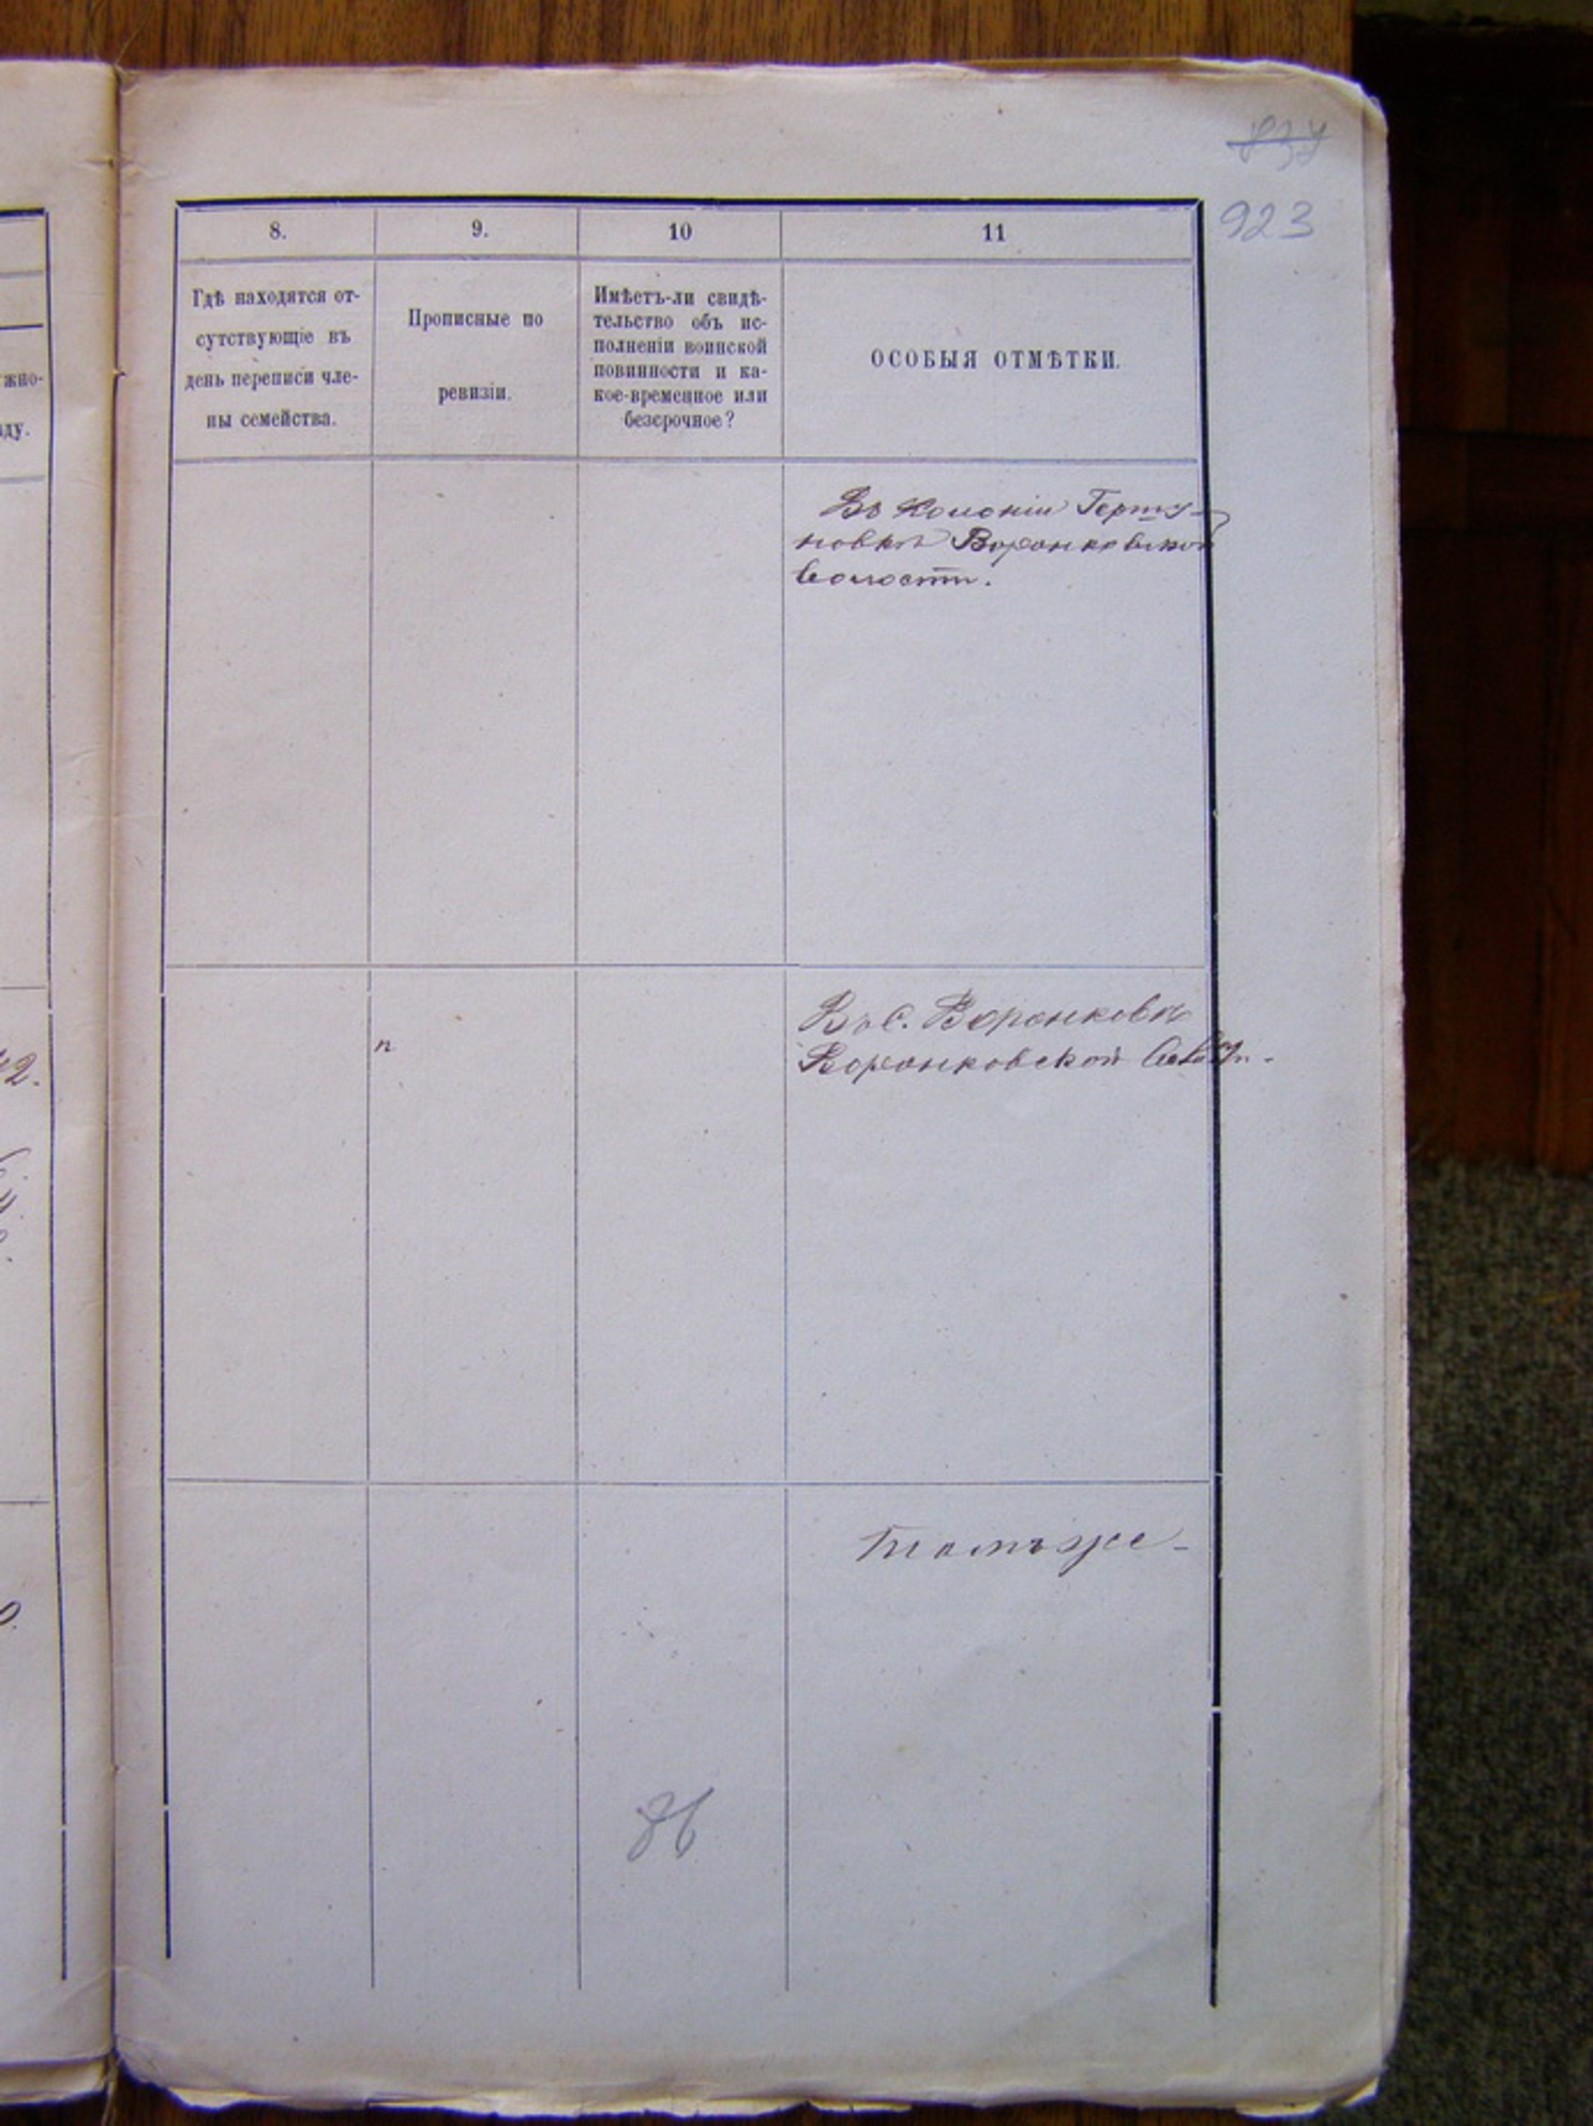 923
8.
9.
10
11
Гдѣ находятся от-
сутствующіе въ
день переписи чле-
ны семейства.
Прописные по
ревизіи.
Имѣетъ-ли свидѣ-
тельство объ ис-
полненіи воинской
повинности и ка-
кое-временное или
безсрочное?
ОСОБЫЯ ОТМѢТКИ.
жно-
ду.
Въ Колоніи
Воронковской
волости.
Въ С. Воронковѣ
Воронковской
2.
п
Тамъ же -
86